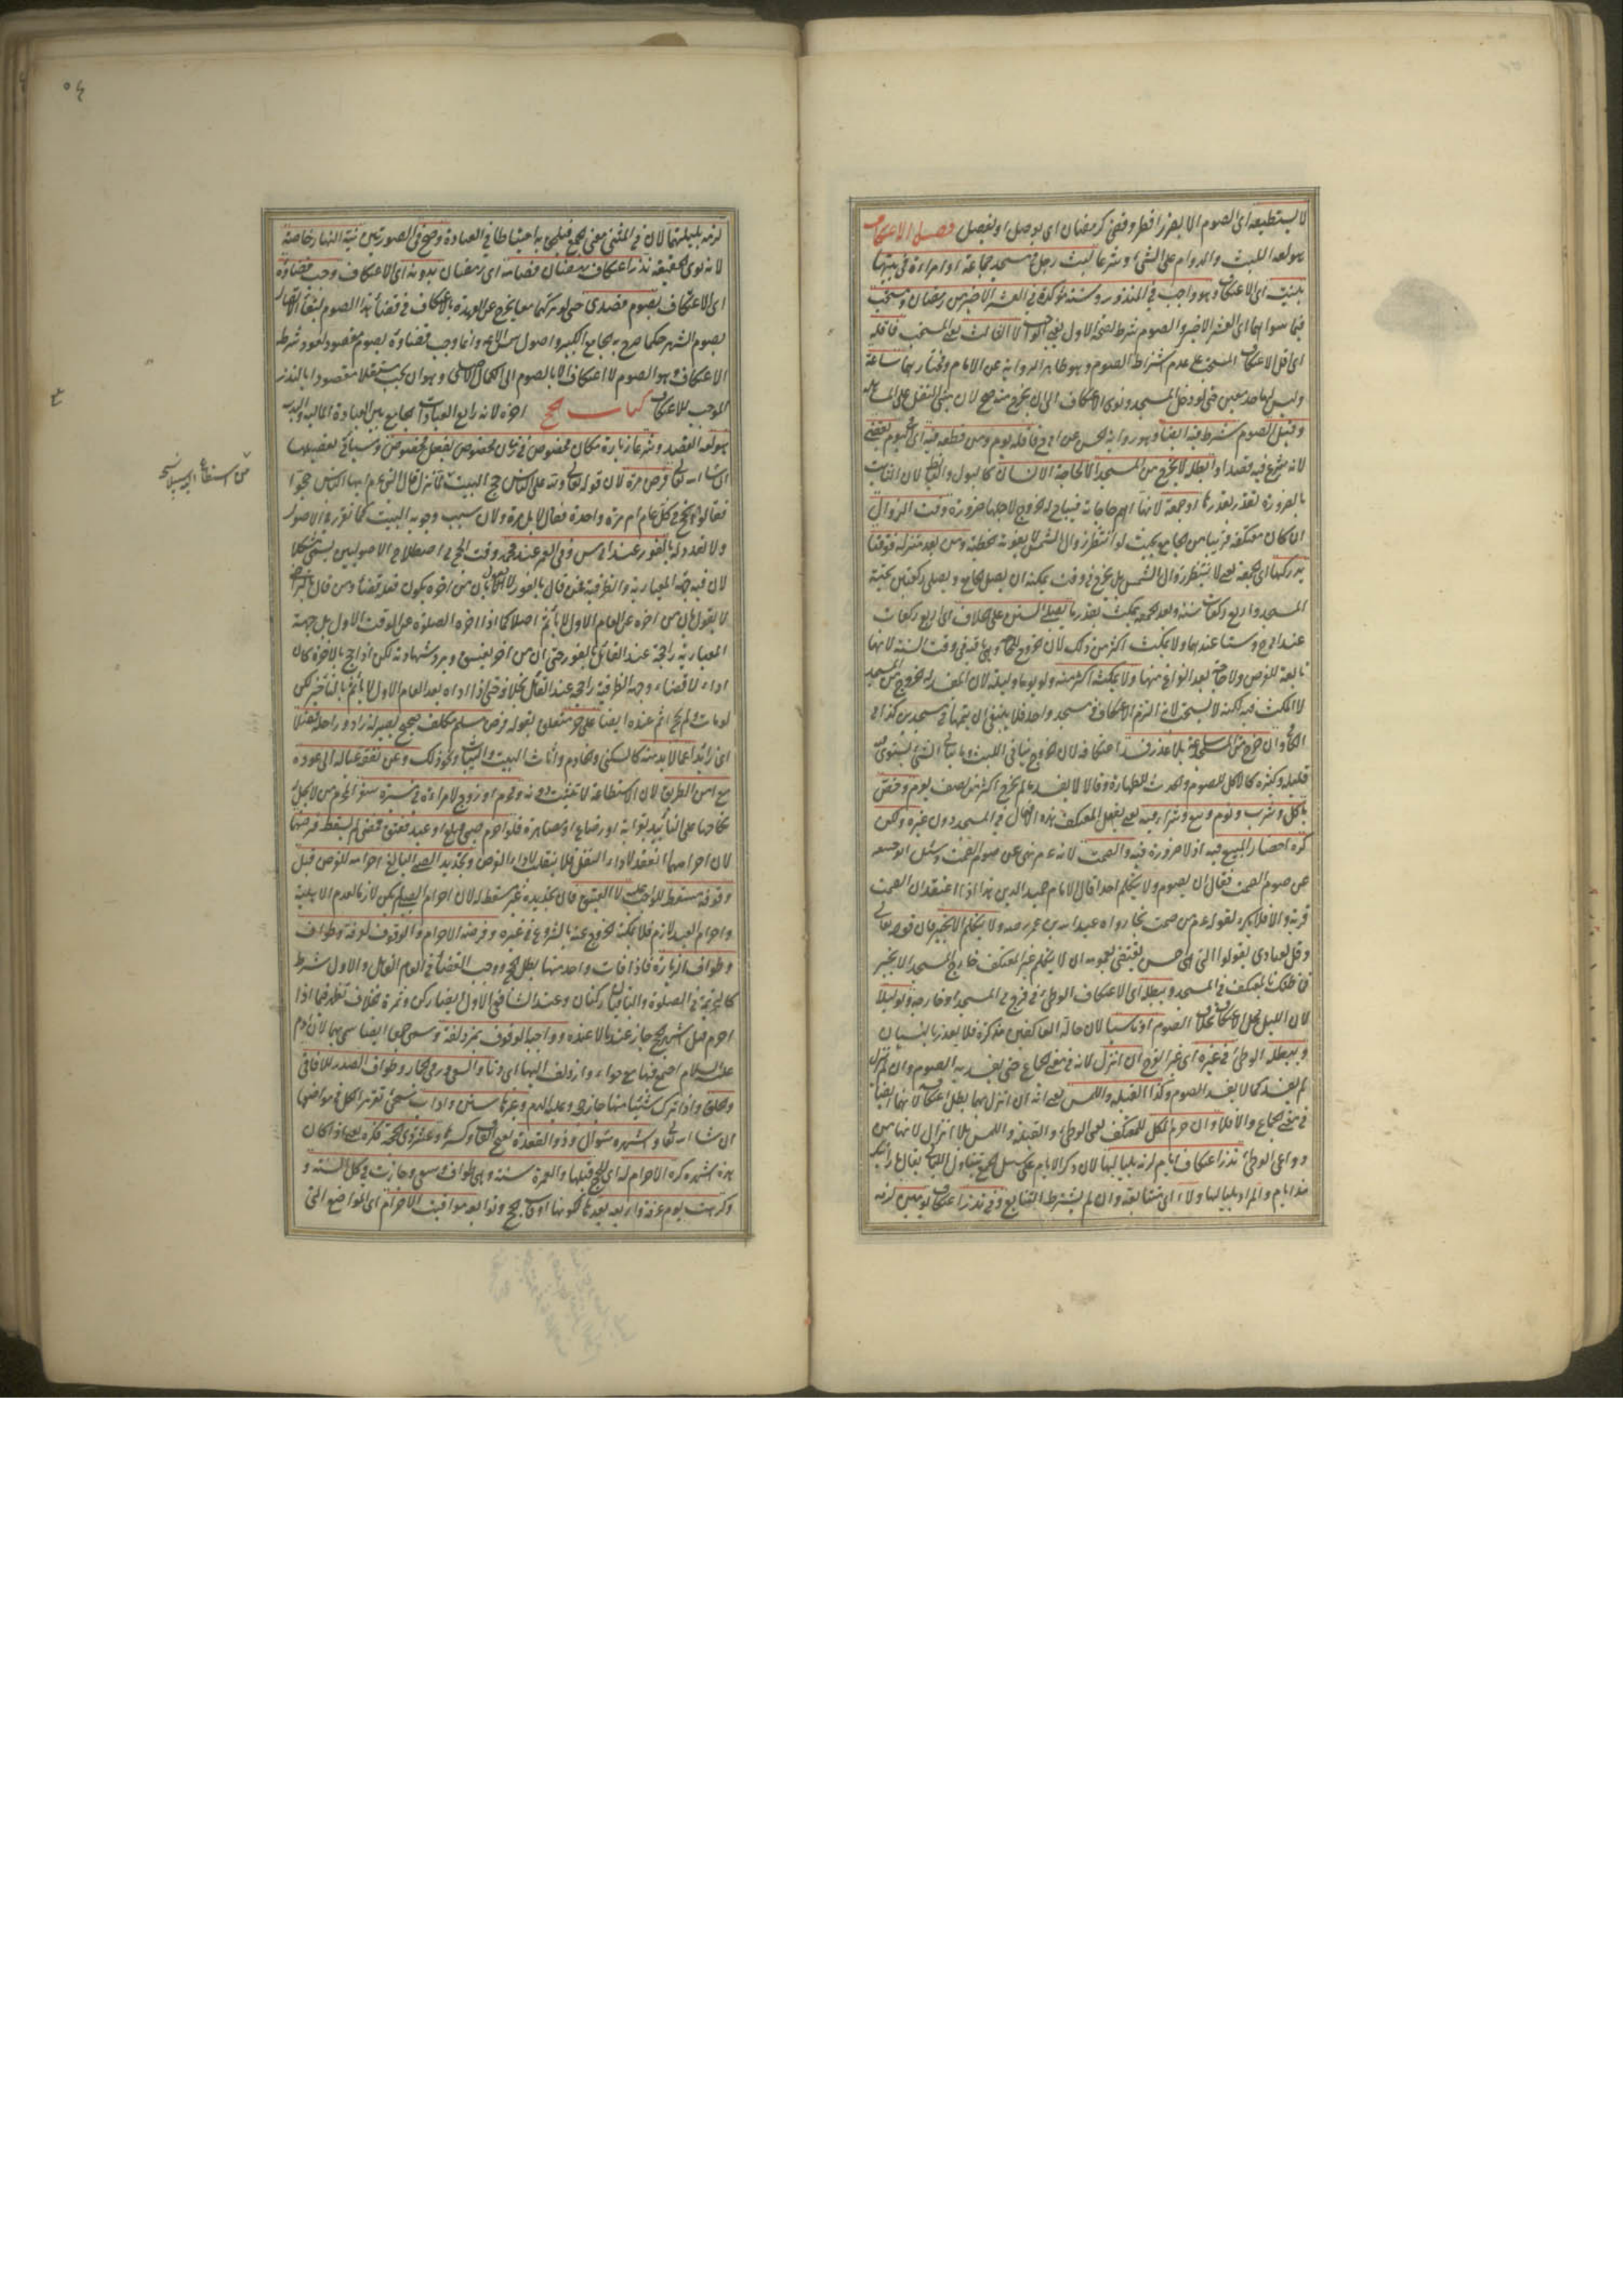 لا يستطيعه اى الصوم الا بضرر افطر وقضى كرمضان اى بوصل او بفصل فصل الاعتكاف
هو لغة اللبث والدوام على الشئ وشرعا لبث رجل فى مسجد جماعة او امراءة فى بيتها
بنيت اى الاعتكاف وهو واجب فى المنذور وسنة مؤكدة فى العشر الاخير من رمضان ومستحب
فيما سواهما اى العشر الاخير والصوم شرط لصحة الاول يعنى الواجب لا الثالث يعنى المستحب فاقله
اى اقل الاعتكاف المستحب على عدم اشتراط الصوم وهو ظاهر الرواية عن الامام ومختارهما ساعة
وليس لها حد معين حتى لو دخل المسجد ونوى الاعتكاف الى ان يخرج منه صح لان مبنى النفل على المساهلة
وقيل الصوم شرط فيه ايضا وهو رواية الحسن عن ابى ح فاقله يوم ومن قطعه فيه اى فى اليوم يقضى
لانه شرع فيه قصدا وابطله لا يخرج من المسجد الا لحاجة الانسان كالبول والغائط لان الثابت
بالضرورة يتقدر بقدرها او جمعة لانها اهم حاجاته فيباح له الخروج لاجلها ضرورة وقت الزوال
ان كان معتكفه قريبا من الجامع بحيث لو انتظر زوال الشمس لا يفوته الخطبة ومن بعد منزله فوقتا
يدركها اى الجمعة يعنى لا ينتظر زوال الشمس بل يخرج فى وقت يمكنه ان يصل الجامع ويصلى ركعتين تحية
المسجد واربع ركعات سنة وبعد الجمعة يمكث بقدر ما يصلى السنن على الخلاف اى اربع ركعات
عند ابى ح وستا عندهما ولا يمكث اكثر من ذلك لان الخروج للحاجة وهى باقية فى وقت السنة لانها
تابعة للفرض ولا حاجة بعد الفراغ منها ولا يفسد بمكثه اكثر منه ولو يوما وليلة لان المفسد له الخروج من المسجد
لا المكث فيه لكنه لا يستحب لانه التزم الاعتكاف فى مسجد واحد فلا ينبغى ان يتمها فى مسجدين كذا فى
الكافى وان خرج من المسجد ساعة بلا عذر فسد اعتكافه لان الخروج ينافى اللبث وما ينافى الشئ يستوى فيه
قليله وكثيره كالاكل للصوم والحدث للطهارة وقالا لا يفسد ما لم يخرج اكثر من نصف يوم وخص
باكل وشرب ونوم وبيع وشراء فيه يعنى يفعل المعتكف هذه الافعال فى المسجد دون غيره ولكن
كره احضار المبيع فيه اذ لا ضرورة فيه والصمت لانه عم نهى عن صوم الصمت وسئل ابو حنيفة
عن صوم الصمت فقال ان يصوم ولا يتكلم احدا قال الامام حميد الدين هذا اذا اعتقد ان الصمت
قربة والا فلا يكره لقوله عم من صمت نجا رواه عبد الله بن عمر رضه ولا يتكلم الا بخير فان قوله تعالى
وقل لعبادى يقولوا التى هى احسن يقتضى بعمومه ان لا يتكلم غير المعتكف خارج المسجد الا بخير
فما ظنك بالمعتكف فى المسجد ويبطله اى الاعتكاف الوطئ فى فرج فى المسجد او خارجه ولو ليلا
لان الليل محل الاعتكاف بخلاف الصوم او ناسيا لان حالة العاكفين مذكرة فلا يعذر بالنسيان
ويبطله الوطئ فى غيره اى غير الفرج ان انزل لانه فى معنى الجماع حتى يفسد به الصوم وان لم ينزل
لم يفسد كما لا يفسد الصوم وكذا القبلة واللمس يعنى انه ان انزل بهما بطل اعتكافه لانهما ايضا
فى معنى الجماع والا فلا وان حرم الكل للمعتكف يعنى الوطئ والقبلة واللمس بلا انزال لانها من
دواعى الوطئ نذر اعتكاف ايام لزمه بلياليها لان ذكر الايام على سبيل الجمع يتناول الليالى يقال ما رأيتك
منذ ايام والمراد بلياليها ولاء اى متتابعة وان لم يشترط التتابع وفى نذر اعتكاف يومين لزمه
٥٤
لزمه بليلتهما لان فى المثنى معنى الجمع فيلحق به احتياطا فى العبادة وصح فى الصورتين نية النهار خاصة
لانه نوى الحقيقة نذر اعتكاف رمضان فصامه اى رمضان بدونه اى الاعتكاف وجب قضاؤه
اى الاعتكاف بصوم قصدى حتى لو تركهما معا يخرج عن العهدة بالاعتكاف فى قضاء هذا الصوم لبقاء الاتصال
بصوم الشهر حكما صرح به الجامع الكبير واصول شمس الائمه وانما وجب قضاؤه بصوم مقصود لعود شرطه
الاعتكاف وهو الصوم لا اعتكاف الا بالصوم الى الكمال الاصلى وهو ان يجب مستقلا مقصودا بالنذر
الموجب للاعتكاف كتاب الحج اخره لانه رابع العبادات الجامع بين العبادة المالية والبدنية
هو لغة القصد وشرعا زيارة مكان مخصوص فى زمان مخصوص بفعل مخصوص وسياتى تفصيلها
ان شاء الله تعالى فرض مرة لان قوله تعالى ولله على الناس حج البيت لما نزل قال النبى عم ايها الناس حجوا
فقالوا انحج فى كل عام ام مرة واحدة فقال لا بل مرة ولان سبب وجوبه البيت كما تقرر فى الاصول
ولا تعدد له بالفور عند ابى س وفى العمر عند محمد وقت الحج فى اصطلاح الاصوليين يسمى مشكلا
لان فيه جهة المعيارية والظرفية فمن قال بالفور لا يقول بان من اخره يكون فعله قضاء ومن قال بالتراخى
لا يقول بان من اخره عن العام الاول لا يأثم اصلا كما اذا اخر الصلوة عن الوقت الاول بل جهة
المعيارية راجحة عند القائل بالفور حتى ان من اخر يفسق ويرد شهادته لكن اذا حج بالاخرة كان
اداء لا قضاء وجهة الظرفية راجحة عند القائل بخلافه حتى اذا اداه بعد العام الاول لا يأثم بالتأخير لكن
لو مات ولم يحج اثم عنده ايضا على حر متعلق بقوله فرض مسلم مكلف صحيح بصير له زاد وراحلة فضلا
اى زائدا عما لا بد منه كالسكنى والخادم وأثاث البيت والثياب ونحو ذلك وعن نفقة عياله الى عوده
مع امن الطريق لان الاستطاعة لا تثبت دونه ومحرم او زوج لامراءة فى مسيرة سفر المحرم من لا يحل له
نكاحها على التأبيد بقرابة او رضاع او مصاهرة فلو احرم صبى فبلغ او عبد فعتق فمضى لم يسقط فرضهما
لان احرامهما انعقد لاداء النفل فلا ينقلب لاداء الفرض وتجديد الصبى البالغ احرامه للفرض قبل
وقوفه مسقط للواجب عليه لا العتيق فان تجديده غير مسقط له لان احرام الصبى لم يكن لازما لعدم الاهلية
واحرام العبد لازم فلا يمكنه الخروج عنه بالشروع فى غيره وفرضه الاحرام والوقوف بعرفة وطواف
وطواف الزيارة فاذا فات واحد منها بطل الحج ووجب القضاء فى العام القابل والاول شرط
كالتحريمة فى الصلوة والباقيان ركنان وعند الشافعى الاول ايضا ركن وثمرة الخلاف تظهر فيما اذا
احرم قبل اشهر الحج جاز عندنا لا عنده وواجبه الوقوف بمزدلفة وسمى جمعا ايضا سمى بهما لان ادم
عليه السلام اجتمع فيها مع حواء وازدلف اليها اى دنا والسعى ورمى الجمار وطواف الصدر للافاقى
والحلق واذا ترك شيئا منها جاز حجه وعليه الدم وغيرها سنن واداب سيجئ تقرير الكل فى مواضعها
ان شاء الله تعالى واشهره شوال وذو القعدة بفتح القاف وكسرها وعشر ذى الحجة فكره يعنى اذا كان
هذه اشهره كره الاحرام له اى للحج قبلها والعمرة سنة وهى طواف وسعى وجازت فى كل السنة و
وكرهت يوم عرفة واربعة بعدها لكونها اوقات الحج وتوابعه مواقيت الاحرام اى المواضع التى
من استطاع اليه سبيلا